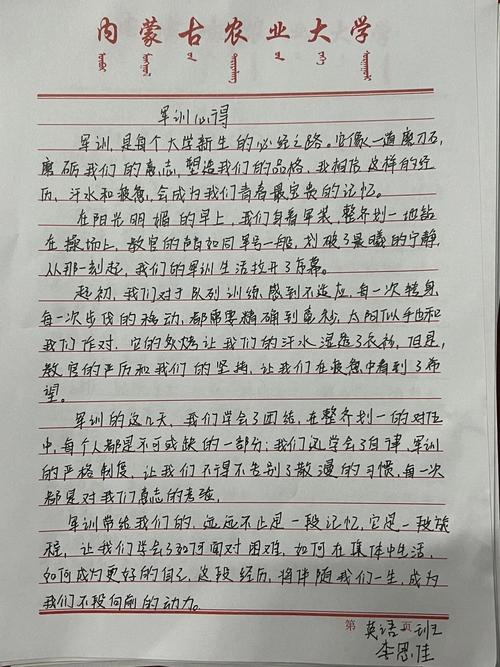 内蒙古农业大学
军训心得
军训,是每个大学新生的必经之路。它像一道磨刀石,
磨砺我们的意志,塑造我们的品格,我相信这样的经
历,汗水和疲惫,会成为我们青春最宝贵的记忆。
在阳光明媚的早上,我们身着军装,整齐划一地站
在操场上,教官的声音如同军号一般,划破了晨曦的宁静,
从那一刻起,我们的军训生活拉开了序幕。
起初,我们对于队列训练感到不适应,每一次转身,
每一次步伐的移动,都需要精确到毫秒,太阳似乎也和
我们作对,它的炙烤让我们的汗水湿透了衣衫,但是,
教官的严厉和我们的坚持,让我们在疲惫中看到了希
望。
军训的这几天,我们学会了团结,在整齐划一的队伍
中,每个人都是不可或缺的一部分;我们还学会了自律,军训
的严格制度,让我们不得不告别了散漫的习惯,每一次
都是对我们意志的考验。
军训带给我们的,远远不止是一段记忆,它是一段旅
程,让我们学会了如何面对困难,如何在集体中生活,
如何成为更好的自己,这段经历,将伴随我们一生,成为
我们不段向前的动力。
第 页
英语一班
李恩佳